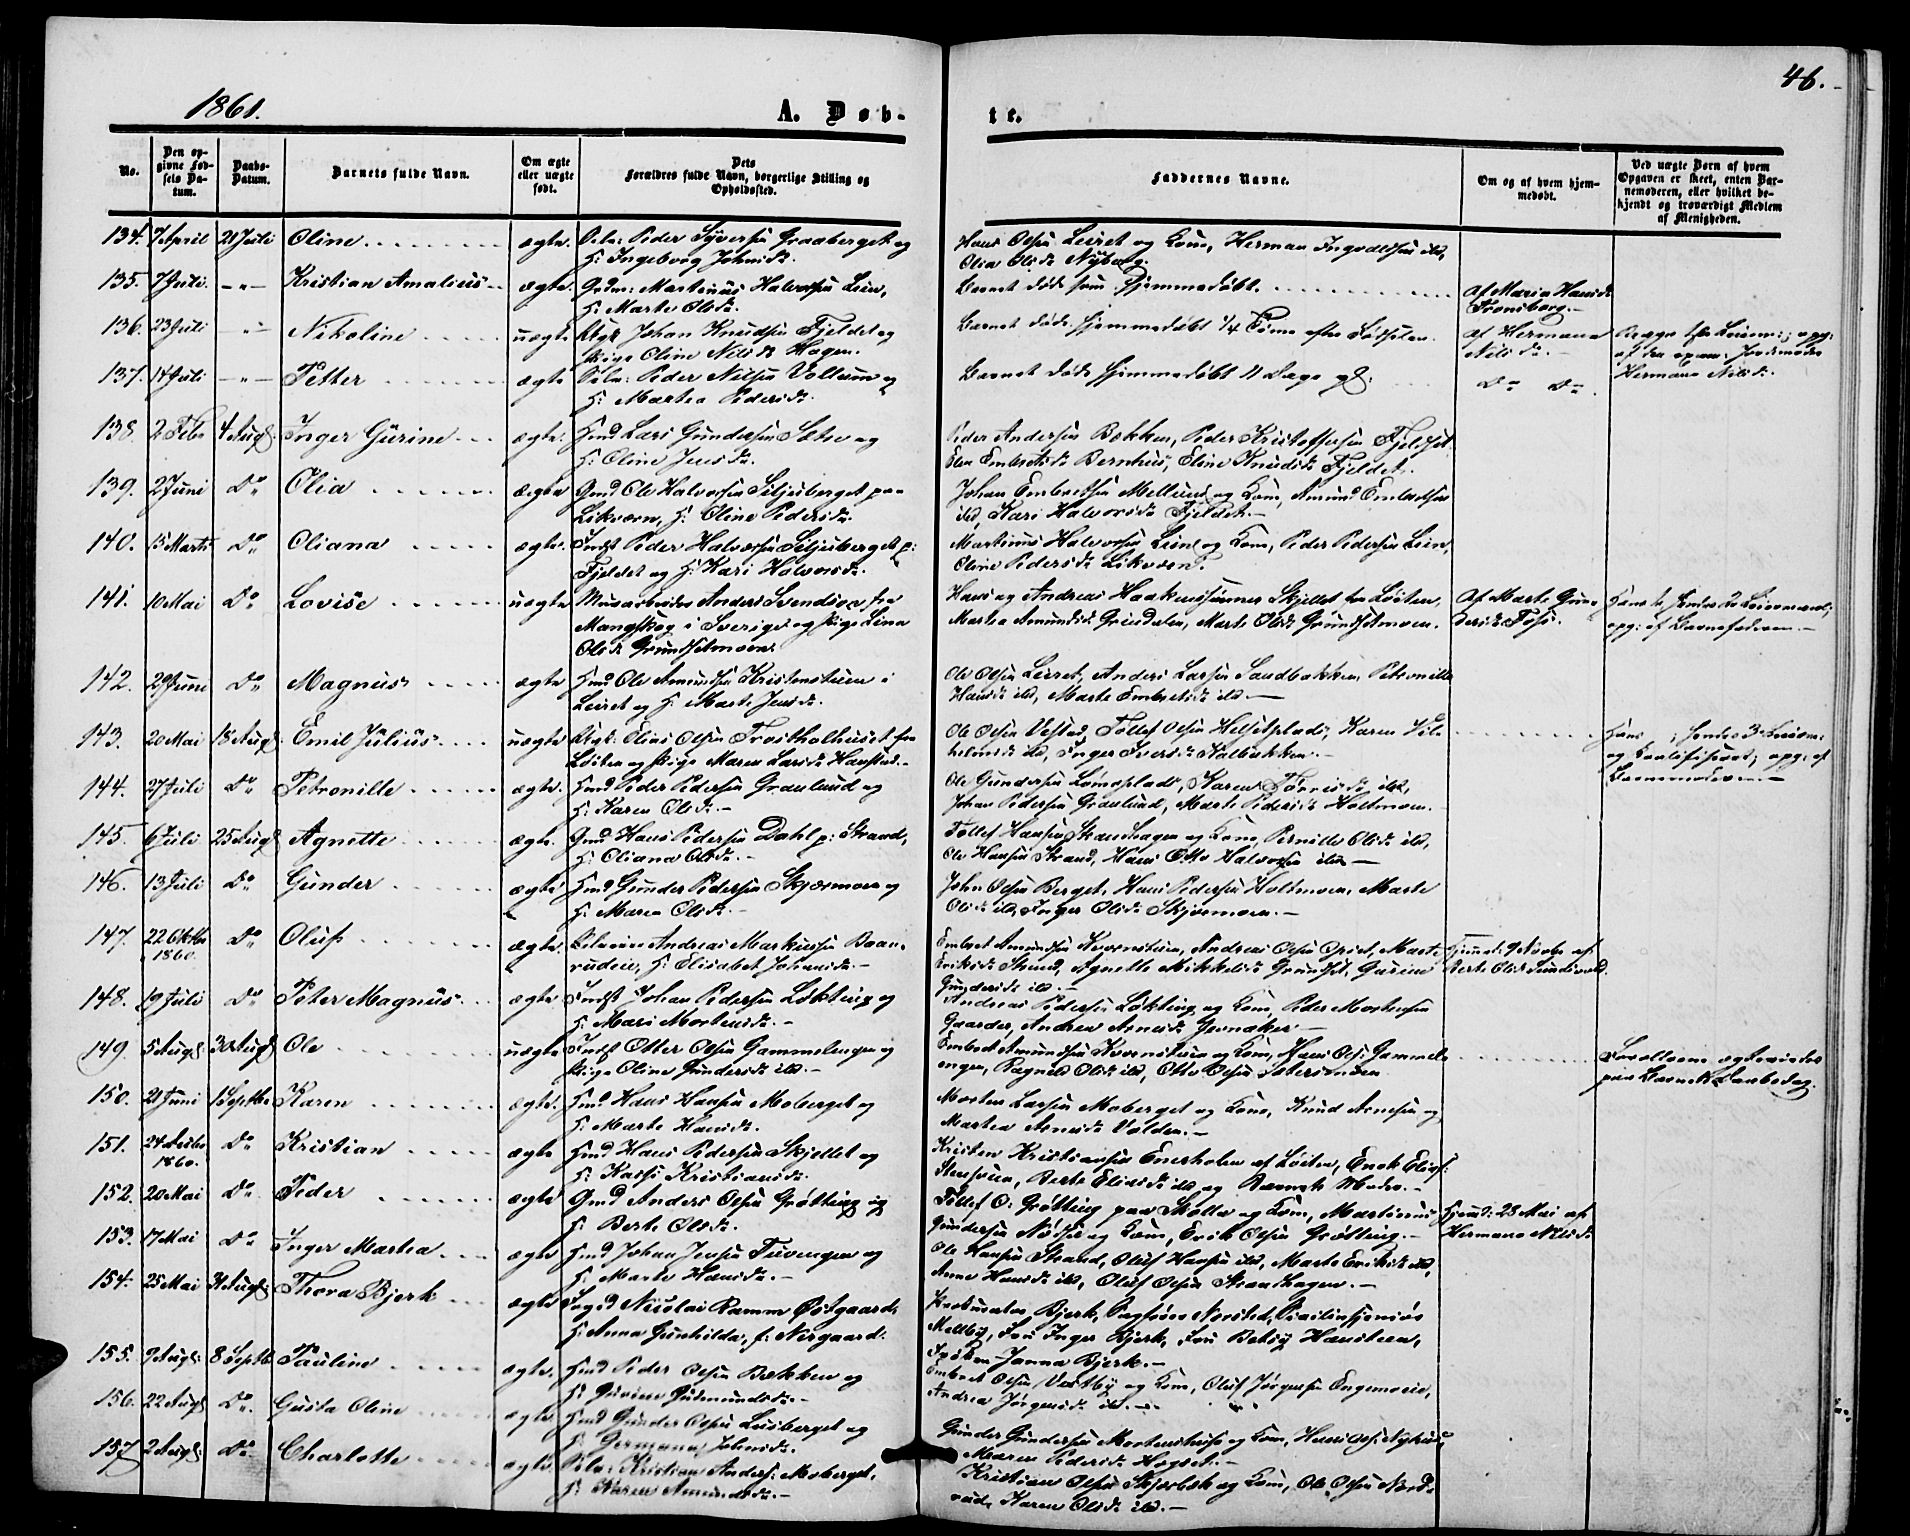 1861.
A. Døb-
te.
46.
No.
Den op-
givne Fød-
sels Da-
tum.
Daabs-
Datum.
Barnets fulde Navn.
Om ægte
eller uægte
født.
Dets
Forældres fulde Navn, borgerlige Stilling og
Opholdssted.
Faddernes Navne.
Om og af hvem hjem-
medøbt.
Ved uægte Børn af hvem
Opgaven er skeet, enten Bar-
nemoderen, eller hvilket be-
kjendt og troværdigt Medlem
af Menigheden.
134. 7 April 21 Juli Oline ægte. Peder Syversen Graaberget og
H: Ingeborg Johnsd.
Hans Olsen Leiret og Kone, Herman Ingvaldsen ibd,
Olia Olsd. Nyberg.
135. 7 Juli. -"- Kristian Amalius ægte. Martinus Halvorsen Lien,
H: Marte Olsd.
Barnet døde som hjemmedøbt.
af Maria Hansd.
Fronsberg.
136. 23 Juli -"- Nikoline uægte Ungk. Johan Knudsen Fjeldet og
Pige Oline Nilsd. Hagen.
Barnet døde hjemmedøbt 1/4 Time efter Fødselen.
af Hermana
Nilsd.
Hermana Nilsd.
137. 14 Juli -"- Petter ægte Peder Nilsen Vollum og
H: Martea Pedersd.
Barnet døde hjemmedøbt 11 Dage gl.
Do Do
138. 2 Feb 4 Aug. Inger Gurine ægte. Hmd Lars Gundersen Sætre og
H: Oline Jensd.
Peder Andersen Bækken, Peder Kristoffersen Fjeldset
Elen Embretsd. Bernhus, Eline Knudsd. Fjeldet.
139. 2 Juni Do Olia ægte Gmd Ole Halvorsen Siljuberget paa
Likværn, H: Oline Pedersd.
Johan Embretsen Mellum og Kone, Amund Embretsen
ibd, Kari Halvorsd. Fjeldet.
140. 13 Marts Do Oliana ægte. Indst Peder Halvorsen Siljuberget p:
Fjeldet og H: Kari Halvorsd.
Martinus Halvorsen Lien og Kone, Peder Pedersen Lien,
Oline Pedersd. Likværn.
141. 10 Mai Do Lovise uægte Anders Svendsen fra
Mangskog i Sverige og Pige Lina
Olsd. Grundsetmoen.
Hans og Andreas Haakenssønner Skjellet fra Løiten,
Martea Amundsd. Grindalen, Marte Olsd. Grundsetmoen.
Af Marte Gun-
dersd. Fossi.
opg: af Barnefaderen.
142. 29 Juni Do Magnus ægte Hmd Ole Amundsen Kristenstuen i
Leiret og H: Marte Jensd.
Ole Olsen Leiret, Anders Larsen Sandbakken, Petronille
Hansd. ibd, Marte Embretsd. ibd.
143. 20 Mai 18 Aug. Emil Julius uægte Ungk: Elias Olsen Frostholhuset fra
Løiten og Pige Maren Larsd. Hanstad.
Ole Olsen Vestad, Tollef Olsen Helsetplads, Karen Vil-
helmsd. ibd, Inger Iversd. Kalbækken.
opg: af
Barnemoderen.
144. 27 Juli Do Petronille ægte. Hmd Peder Pedersen Granlund og
H: Karen Olsd.
Ole Gundersen Lømoplads, Karen Tørrisd. ibd,
Johan Pedersen Granlund, Marte Pedersd. Holtmoen.
145. 6 Juli 25 Aug. Agnette ægte. Gmd Hans Pedersen Dahl p: Strand,
H: Oliana Olsd.
Tollef Hansen Skandhagen og Kone, Pernille Olsd. ibd,
Ole Hansen Strand, Hans Otto Halvorsen ibd.
146. 13 Juli Do Gunder ægte Hmd Gunder Pedersen Skjæsmoen og
H: Maren Olsd.
John Olsen Berget, Hans Pedersen Holtmoen, Marte
Olsd. ibd, Inger Olsd. Skjæsmoen.
147. 22 Oktbr
1860. Do Oluf ægte. Andreas Markussen Baan-
rudeie, H: Elisabet Johnsd.
Embret Amundsen Kvernstuen, Andreas Olsen Opset, Marte
Eriksd. Strand, Agnette Mikkelsd. Grundset, Gurine
Gundersd. ibd.
af
Berte Olsd.
148. 19 Juli Do Peter Magnus ægte Indst Johan Pedersen Løkting og
H: Mari Mortensd.
Andreas Pedersen Løkting og Kone, Peder Mortensen
Gaarder, Andrea Arnesd. Jernaker
149. 5 Aug. 30 Aug. Ole uægte Indst Otter Olsen Gammelengen og
Pige Oline Gundersd. ibd.
Embret Amundsen Kvernstuen og Kone, Hans Ols: Gammel-
engen, Ragnild Olsd. ibd, Otto Olsen Sætersmoen
Forældrene ægteviedes
paa Barnets Daabsdag.
150. 21 Juni 1 Septbr Karen ægte. Hmd Hans Hansen Moberget og
H: Marte Hansd.
Morten Larsen Moberget og Kone, Knud Arnesen og
Martea Arnesd. Volden.
151. 24
1860. Do Kristian ægte Hmd Hans Pedersen Skjellet og
H: Kari Kristiansd.
Kristen Kristiansen Enerholen af Løiten, Enok Elias-
Berte Eliasd. ibd og Barnets Moder.
152. 20 Mai Do Peder ægte Gmd Anders Olsen Grøtting og
H: Berte Olsd.
Tollef O: Grøtting paa Skolla og Kone, Martinus
Gundersen Nødset og Kone, Erik Olsen Grøtting.
Hjemd: 28 Mai af
Hermana Nilsd.
153. 17 Mai Do Inger Martea ægte Hmd Johan Jensen Tuvengen og
H: Marte Hansd.
Ole Hansen Strand, Oluf Hansen ibd, Marte Eriksd. ibd,
Anne Hansd. ibd, Oluf Olsen Strandhagen.
154. 25 Mai 31 Aug. Thora Bjerk ægte Nicolai Ramm Østgaard,
H: Anna Gunhilda, f: Nergaard.
Prokurator Bjerk, Nordsted,
Melbÿ, Fru Inger Bjerk, Fru Betsy Hansteen,
Frøken Janna Bjerk.
155. 9 Aug. 8 Septb. Pauline ægte. Hmd Peder Olsen Bækken og
H: Gurine Gudmundsd.
Embret Olsen Vestby og Kone, Oluf Jørgensen Engemoeie,
Andrea Jørgensd. ibd.
156. 22 Aug. Do. Gusta Oline ægte Hmd Gunder Olsen Lusberget og
H: Germana Johnsd.
Gunder Gundersen Mortenstuen og Kone, Hans Ols: Nyhuus,
Maren Pedersd. Hogset.
157 2 Aug. Do Charlotte ægte Kristian Anders: Moberget,
H: Karen Amundsd.
Kristian Olsen Skjærbek og Kone, Ole Olsen Nord-
rud, Karen Olsd. ibd.